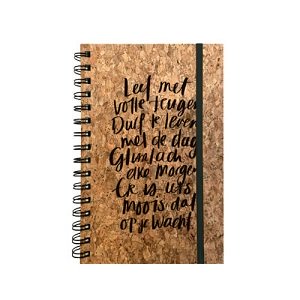 Leef met
volle teugen
Durf te leven
met de dag
Glimlach
elke morgen
Er is iets
moois dat
op je wacht.